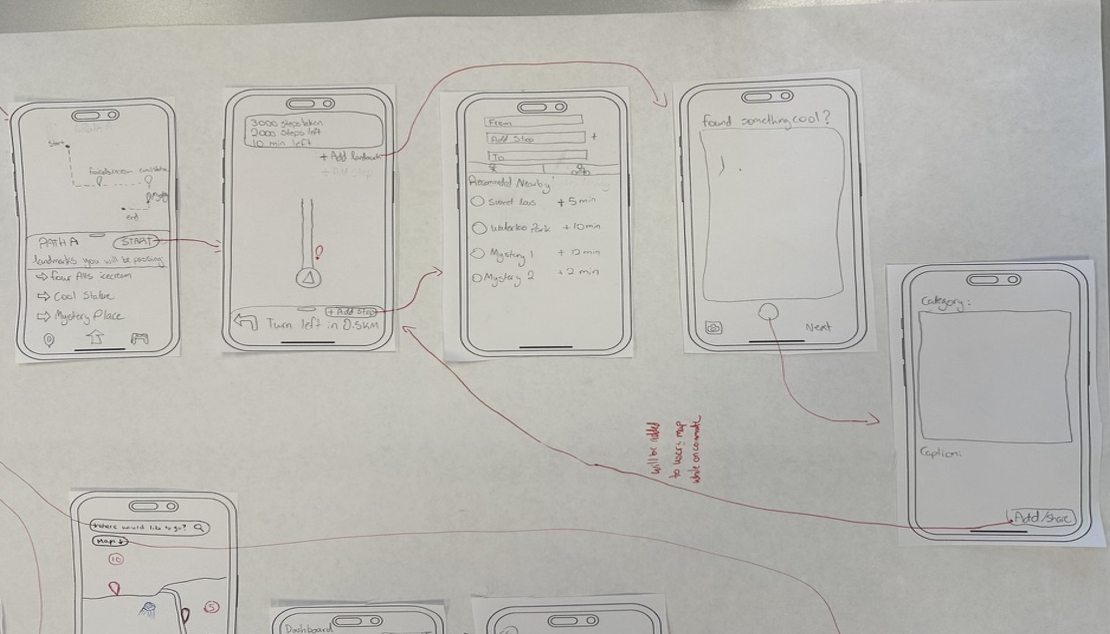 Start
end
PATH A
START
landmarks you will be passing
Four All's icecream
Cool Statue
Mystery Place
3000 steps taken
2000 Steps left
10 min left
+ Add landmark
+ Add Stop
Turn left in 0.5KM
From
Add Stop +
To
Recommended Nearby
+ 5 min
Waterloo Park + 10 min
Mystery 1
Mystery 2 + 2 min
found something cool?
Next
Category:
Caption:
Add/Share
will be added
to users map
while on commute
where would like to go?
Map
10
5
Dashboard